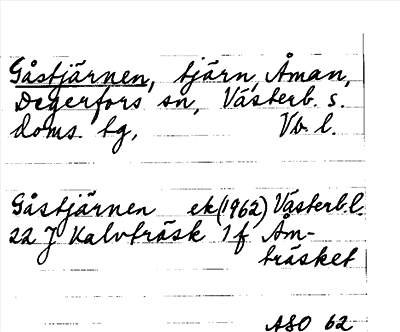 Gåstjärnen, tjärn, Åman,
Degerfors sn, Västerb. s.
doms. tg, Vb l.
Gåstjärnen ek (1962) Västerb.l.
22 J Kalvträsk 1 f Åm-
träsket
ASO 62